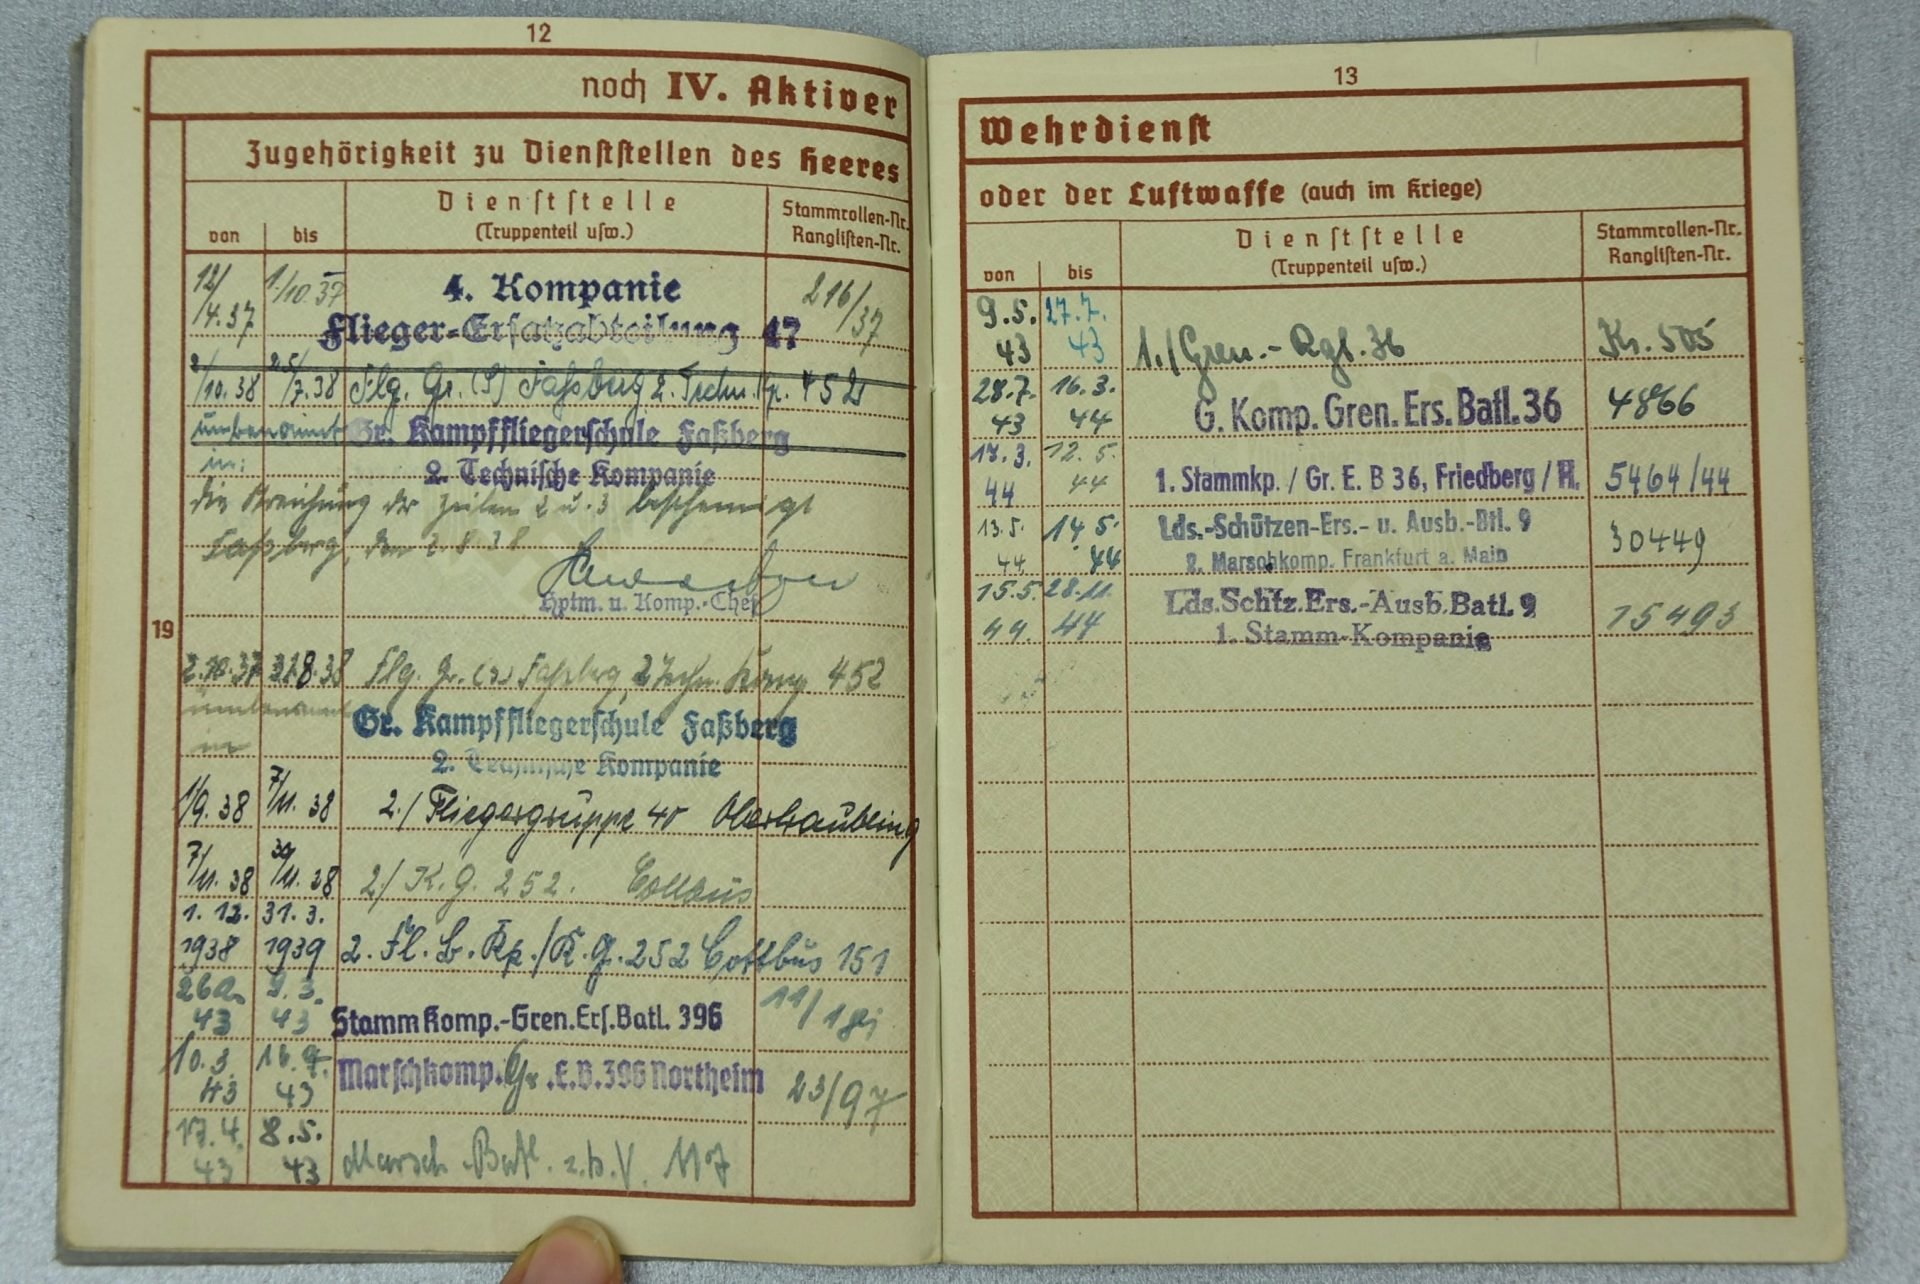 12
noch IV. Aktiver
Zugehörigkeit zu Dienststellen des Heeres
von bis Dienststelle (Truppenteil usw.) Stammrollen-Nr. Ranglisten-Nr.
12/4.37 1/10.37 4. Kompanie 216/37
Flieger-Ersatzabteilung 47
/10.38 /7.38 Flg. Gr. (S) Faßberg 2. Techn. Kp. 452
umbenannt Gr. Kampffliegerschule Faßberg
in: 2. Technische Kompanie
die Streichung der Zeilen 2 u. 3 bescheinigt
Faßberg, den 2.8.38
Hptm. u. Komp.-Chef
19
2.10.37 31.8.38 Flg. Gr. (S) Faßberg, 2 Techn. Komp 452
umbenannt Gr. Kampffliegerschule Faßberg
in 2. Technische Kompanie
1/9.38 7/11.38 2./Fliegergruppe 40
7/11.38 30/11.38 2/ K.G. 252. Cottbus
1.12. 31.3.
1938 1939 2. Fl. B. Kp./K.G. 252 Cottbus 151
9.3.
43 43 Stamm Komp.-Gren.Ers.Batl. 396
10.3. 16.4.
43 43 Marschkomp. Gr.E.B.396 Northeim 23/97
17.4. 8.5.
43 43 Marsch Batl. z.b.V. 117
13
Wehrdienst
oder der Luftwaffe (auch im Kriege)
von bis Dienststelle (Truppenteil usw.) Stammrollen-Nr. Ranglisten-Nr.
9.5. 27.7.
43 43 1./Gren.-Rgt. 36 Kr. 505
28.7. 16.3.
43 44 G. Komp. Gren. Ers. Batl. 36 4866
17.3. 12.5.
44 44 1. Stammkp. / Gr. E. B 36, Friedberg / H. 5464/44
13.5. 14.5. Lds.-Schützen-Ers.- u. Ausb.-Btl. 9
44 44 2. Marschkomp. Frankfurt a. Main 30449
15.5. 28.11. Lds.Schtz.Ers.-Ausb.Batl. 9
44 44 1. Stamm-Kompanie 15493